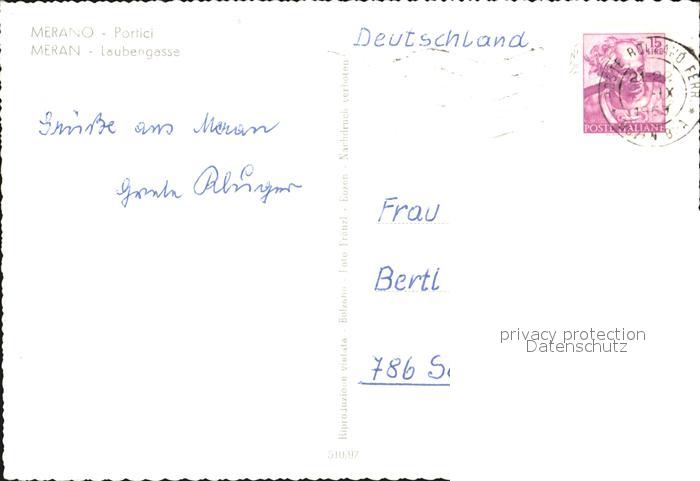 MERANO - Portici
MERAN - Laubengasse
Deutschland
15
LIRE
POSTE ITALIANE
BOLZANO FERR
21-22
IX
Grüße aus Meran
Grete Kluger
Frau
Bertl
786 S
privacy protection
Datenschutz
Riproduzione vietata - Bolzano - Foto Fränzl - Bozen - Nachdruck verboten
510/97